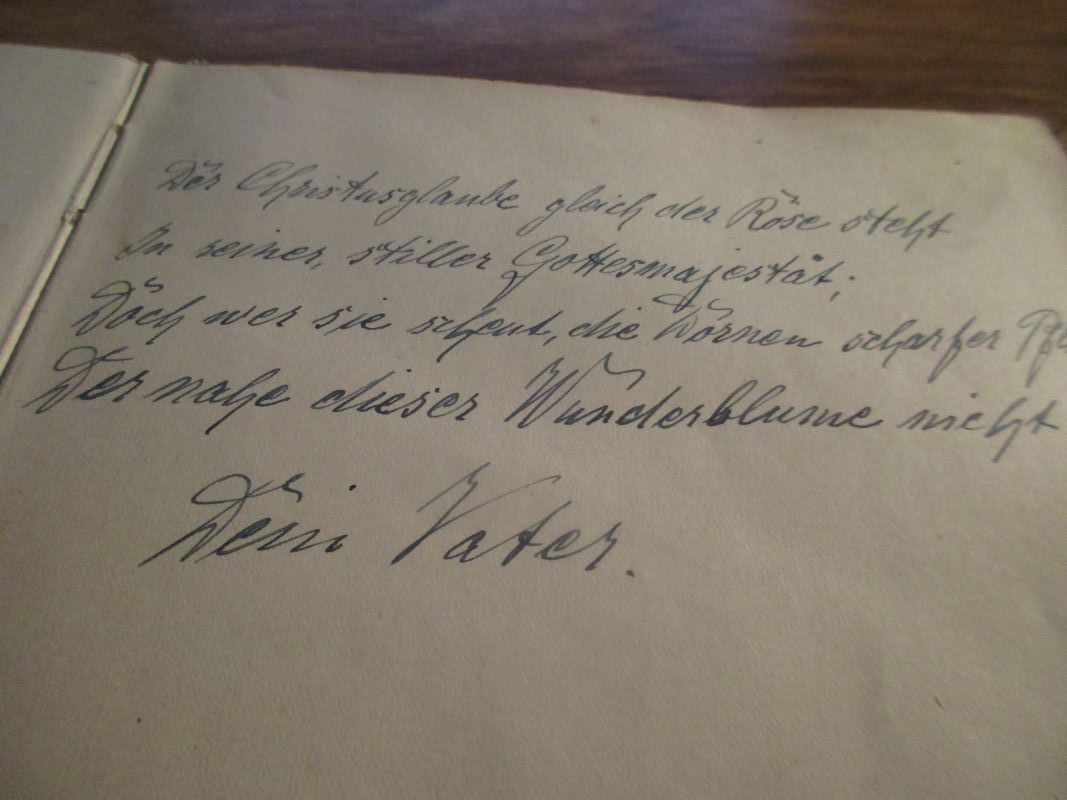 Der Christusglaube gleich der Rose steht
In reiner, stiller Gottesmajestät;
Doch wer sie scheut, die Dornen scharfer
Der nahe dieser Wunderblume nicht
Dein Vater.